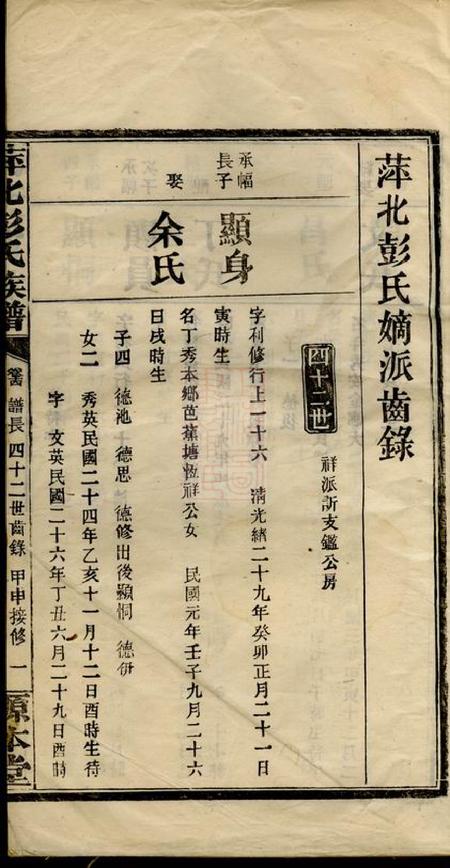 萍北彭氏嫡派齒錄
四十二世
祥派訢支鑑公房
承幅長子
顯身
字利修行上一十六 清光緒二十九年癸卯正月二十一日
寅時生
娶
余氏
名丁秀本鄉芭蕉塘恆祥公女 民國元年壬子九月二十六
日戌時生
子四 德池 德思 德修出後顯恫 德伊
女二 秀英民國二十四年乙亥十一月十二日酉時生待
字 文英民國二十六年丁丑六月二十九日酉時
萍北彭氏族譜
譜長 四十二世齒錄 甲申接修 一
原本堂